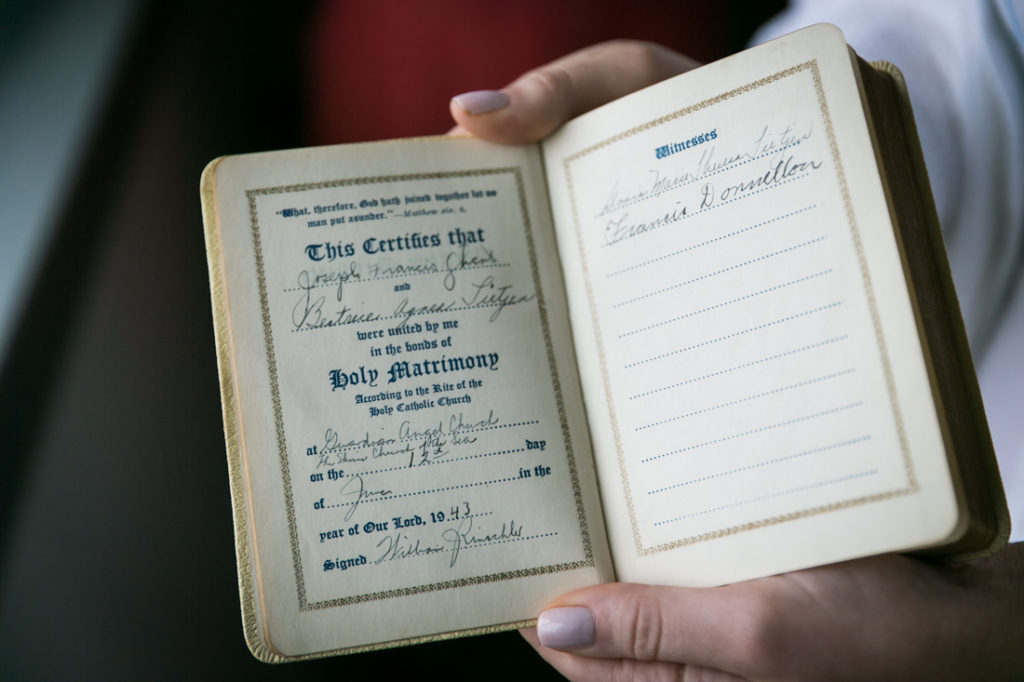 "What, therefore, God hath joined together let no
man put asunder."—Matthew xix. 6.
This Certifies that
Joseph Francis
and
Beatrice Agnes Tietjen
were united by me
in the bonds of
Holy Matrimony
According to the Rite of the
Holy Catholic Church
at Guardian Angel Church
The Shrine Church of the Sea
on the 12th day
of June in the
year of Our Lord, 1943
Signed William
Witnesses
Marie Theresa Tietjen
Francis Donnellon